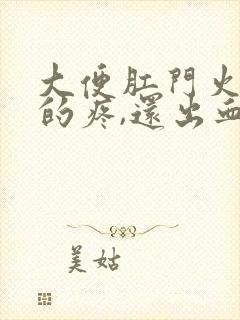 大便肛門火
的疼,還出血
美姑